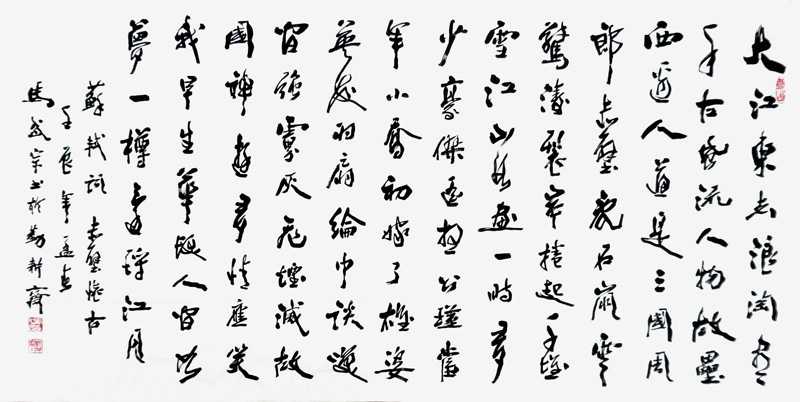 大江東去浪淘盡
千古風流人物故壘
西邊人道是三國周
郎赤壁亂石崩雲
驚濤裂岸捲起千堆
雪江山如畫一時多
少豪傑遙想公瑾當
年小喬初嫁了雄姿
英發羽扇綸巾談笑
間強虜灰飛煙滅故
國神遊多情應笑
我早生華髮人間如
夢一樽還酹江月
蘇軾詞 赤壁懷古
壬辰年
馬成宗書於新齋